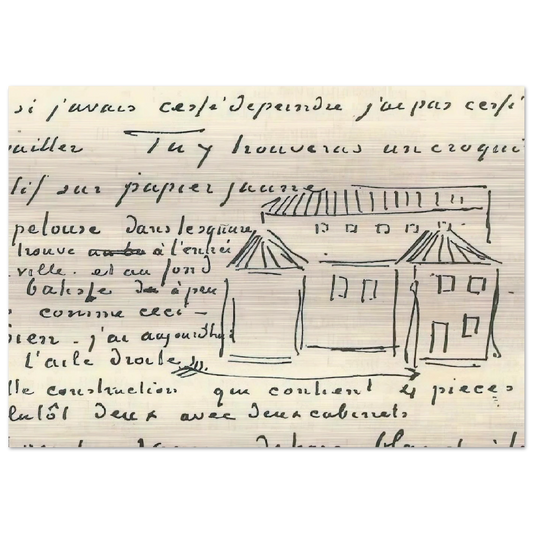 si j'avais cessé depeindre j'ai pas cessé
vailler Tu y trouveras un croquis
tif sur papier jaune
pelouse dans le square
trouve à l'entrée
ville. et au fond
batisse à peu
comme ceci –
bien – j'ai aujourdhui
l'aile droite
lle construction qui contient 4 pieces
lutôt deux avec deux cabinets